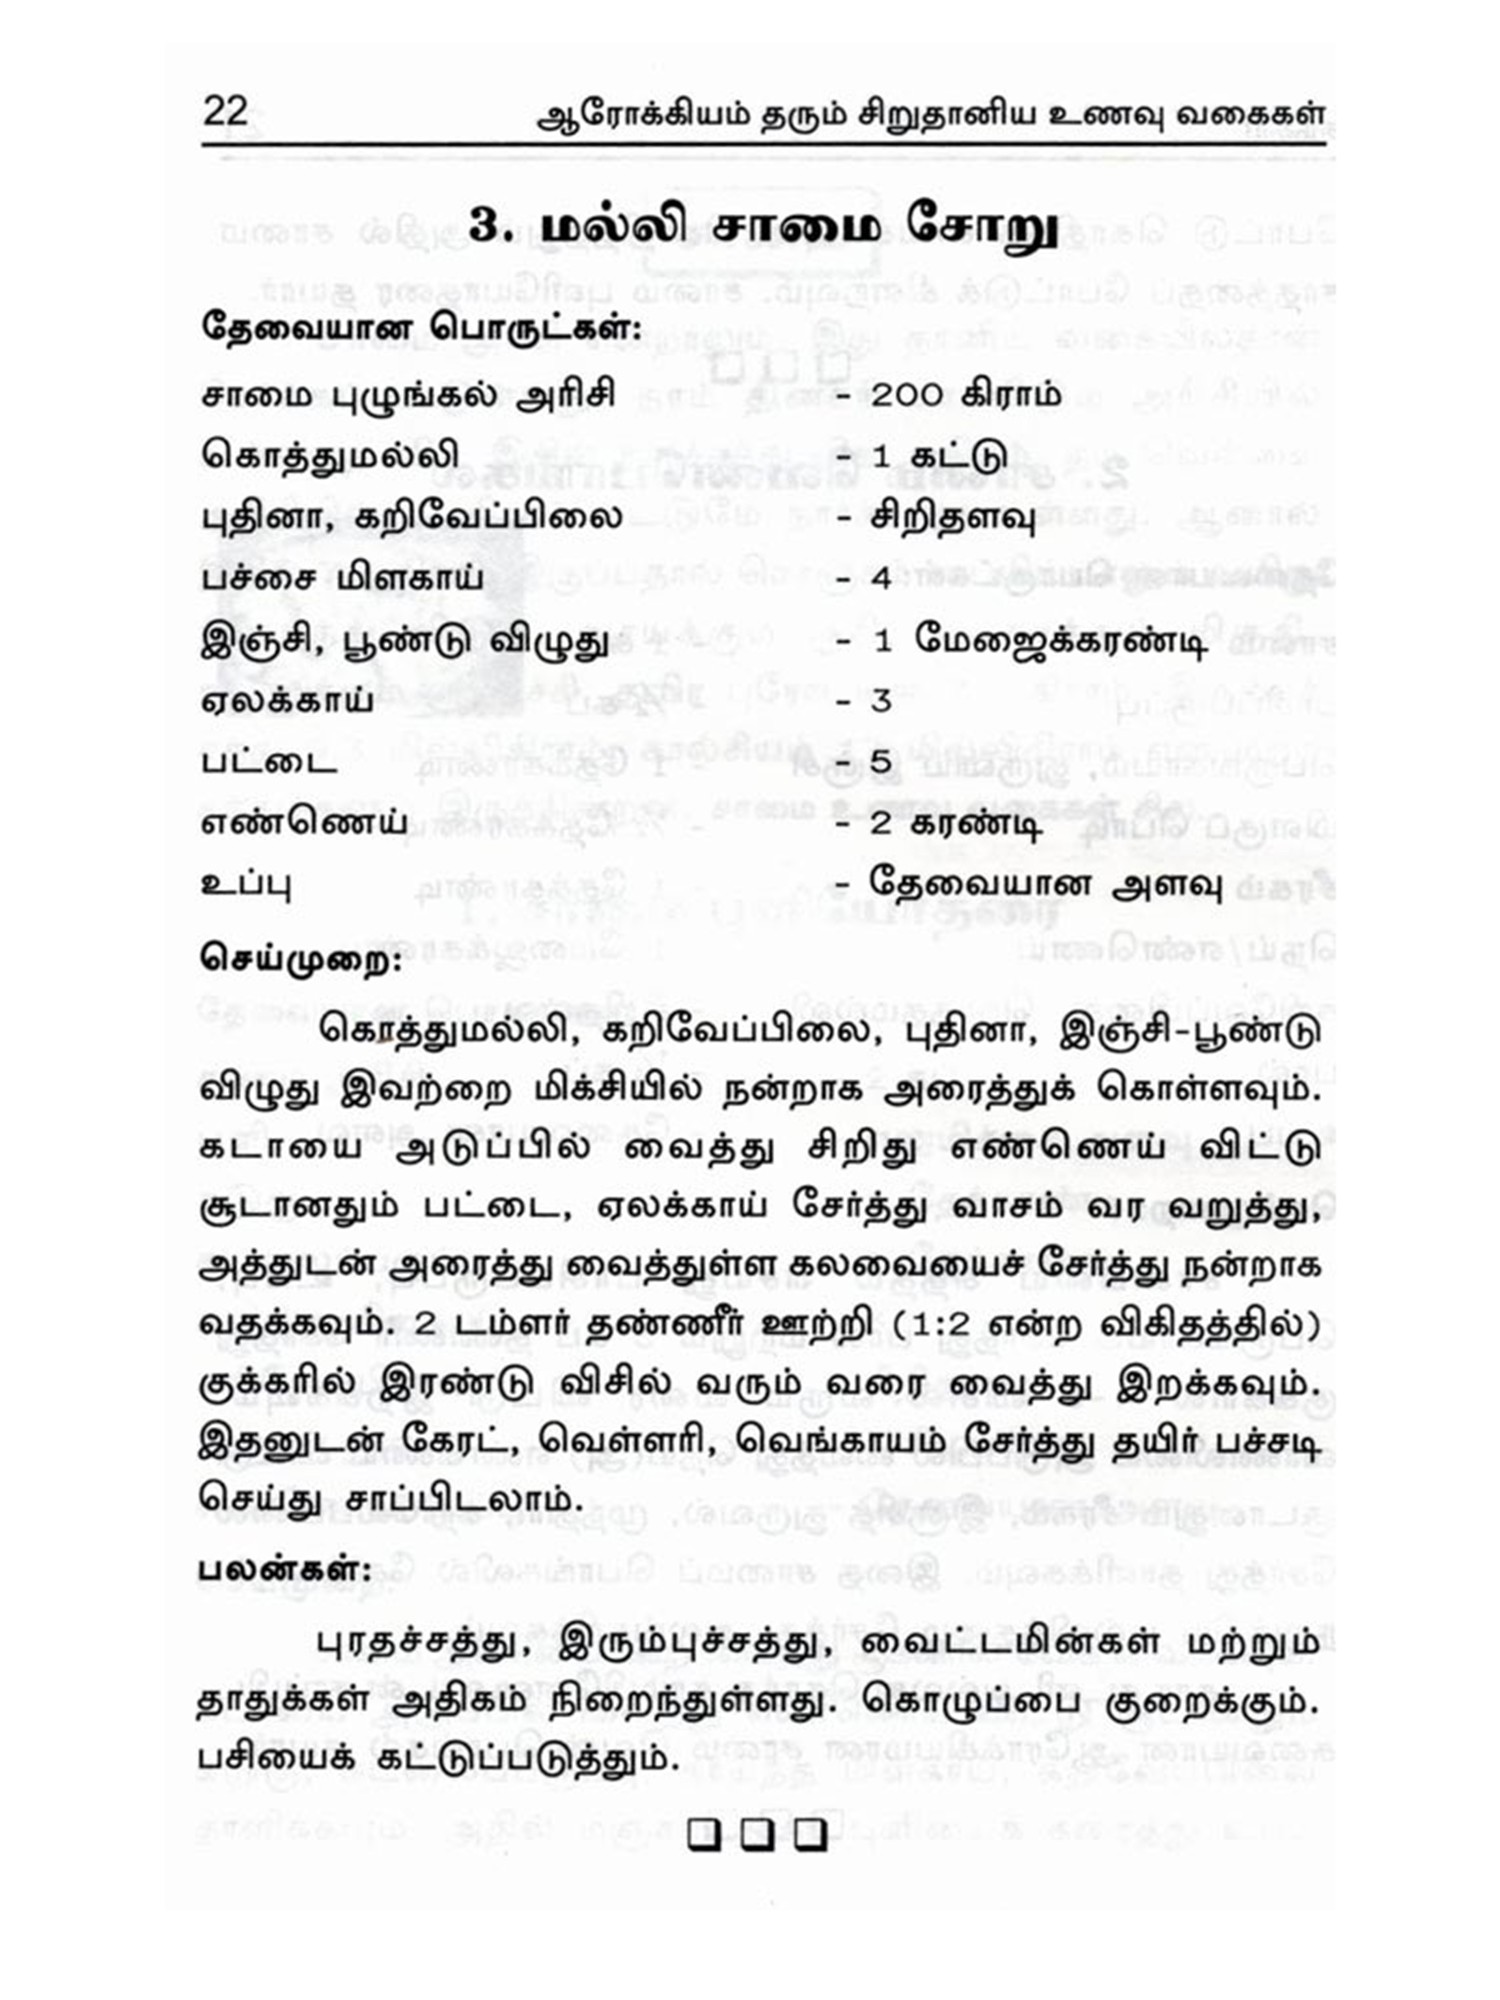 22 ஆரோக்கியம் தரும் சிறுதானிய உணவு வகைகள்
3. மல்லி சாமை சோறு
தேவையான பொருட்கள்:
சாமை புழுங்கல் அரிசி - 200 கிராம்
கொத்துமல்லி - 1 கட்டு
புதினா, கறிவேப்பிலை - சிறிதளவு
பச்சை மிளகாய் - 4
இஞ்சி, பூண்டு விழுது - 1 மேஜைக்கரண்டி
ஏலக்காய் - 3
பட்டை - 5
எண்ணெய் - 2 கரண்டி
உப்பு - தேவையான அளவு
செய்முறை:
கொத்துமல்லி, கறிவேப்பிலை, புதினா, இஞ்சி-பூண்டு
விழுது இவற்றை மிக்சியில் நன்றாக அரைத்துக் கொள்ளவும்.
கடாயை அடுப்பில் வைத்து சிறிது எண்ணெய் விட்டு
சூடானதும் பட்டை, ஏலக்காய் சேர்த்து வாசம் வர வறுத்து,
அத்துடன் அரைத்து வைத்துள்ள கலவையைச் சேர்த்து நன்றாக
வதக்கவும். 2 டம்ளர் தண்ணீர் ஊற்றி (1:2 என்ற விகிதத்தில்)
குக்கரில் இரண்டு விசில் வரும் வரை வைத்து இறக்கவும்.
இதனுடன் கேரட், வெள்ளரி, வெங்காயம் சேர்த்து தயிர் பச்சடி
செய்து சாப்பிடலாம்.
பலன்கள்:
புரதச்சத்து, இரும்புச்சத்து, வைட்டமின்கள் மற்றும்
தாதுக்கள் அதிகம் நிறைந்துள்ளது. கொழுப்பை குறைக்கும்.
பசியைக் கட்டுப்படுத்தும்.